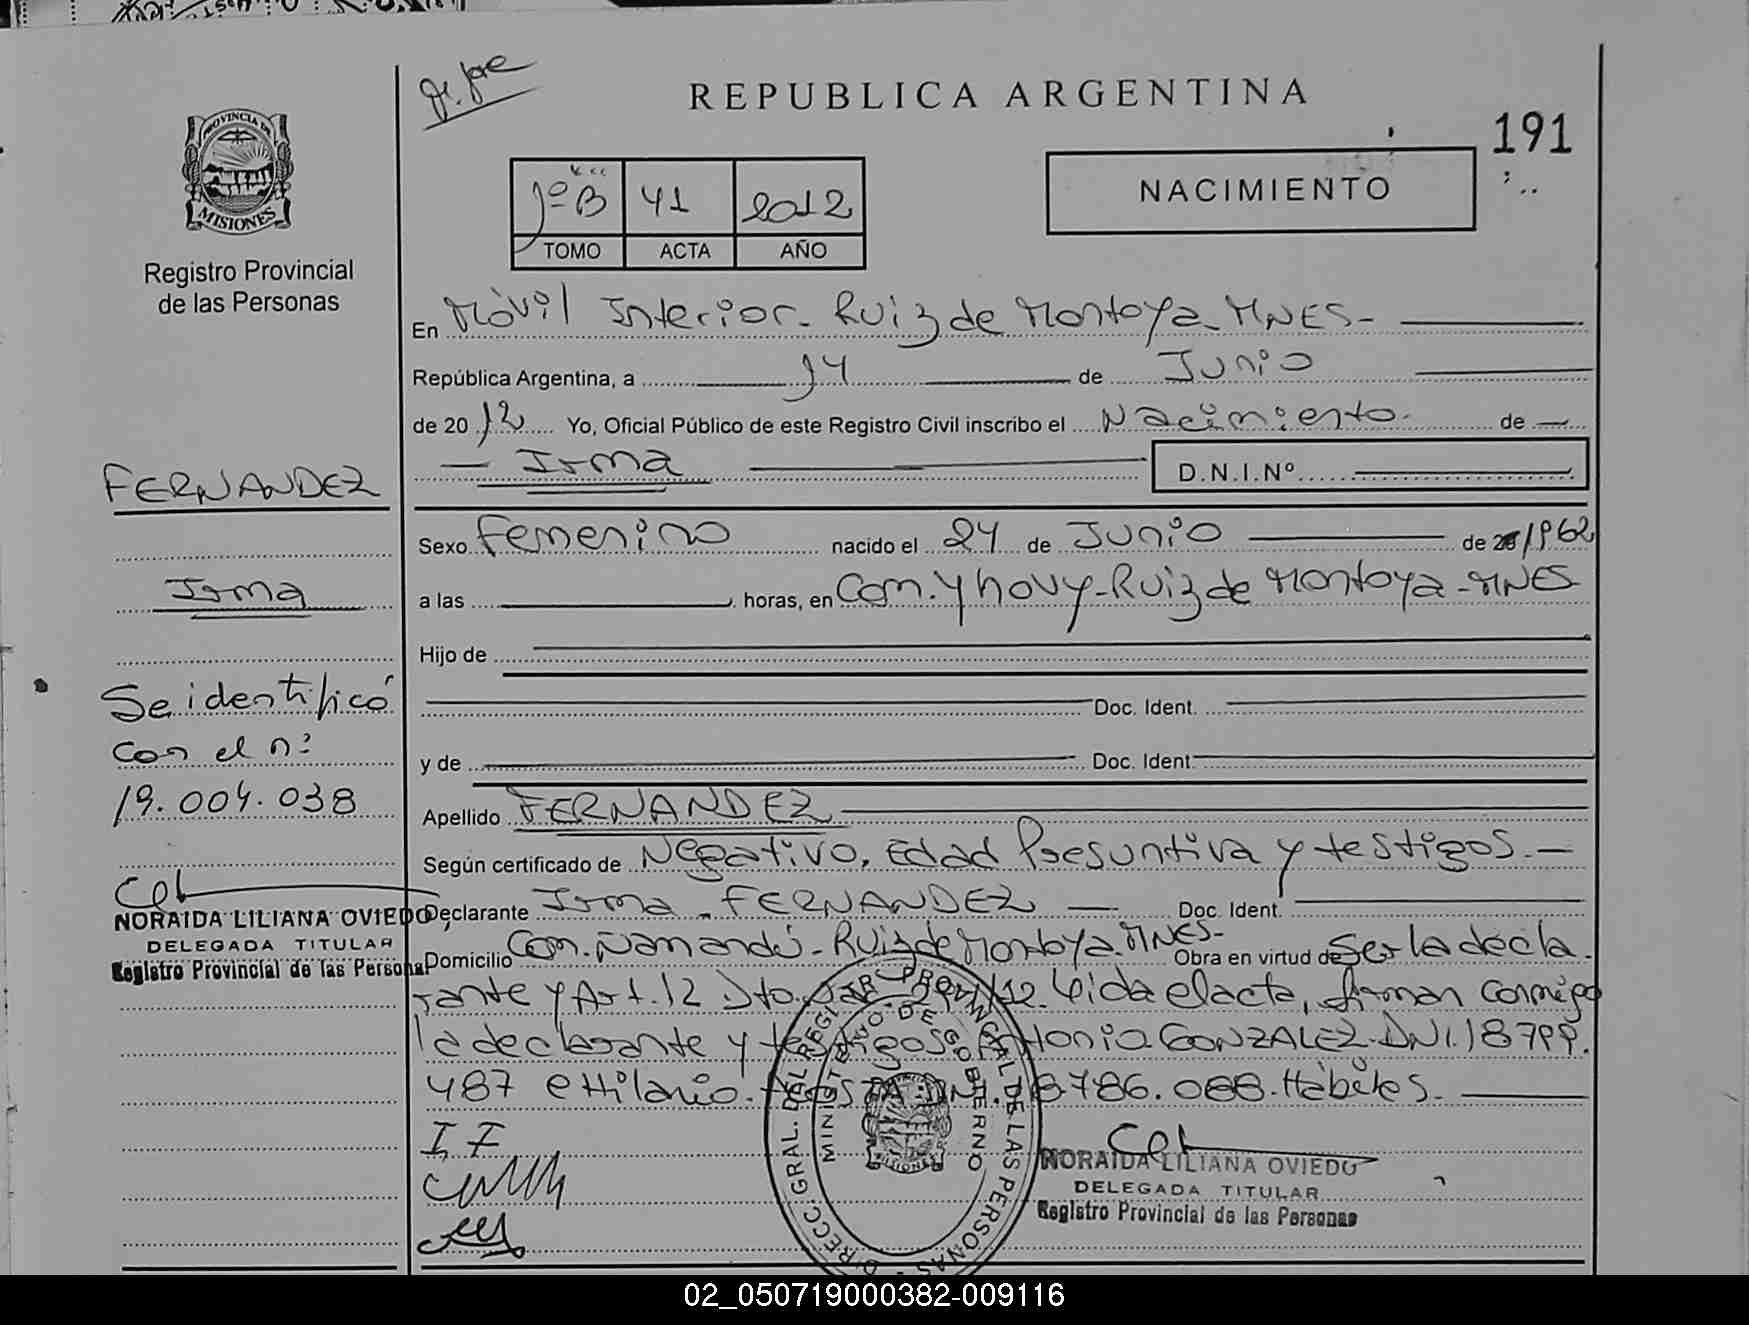 REPUBLICA ARGENTINA
191
PROVINCIA DE
MISIONES
Registro Provincial
de las Personas
1º B 41 2012
TOMO ACTA AÑO
NACIMIENTO
En Móvil Interior - Ruiz de Montoya - MNES -
República Argentina, a 14 de Junio
de 2012 Yo, Oficial Público de este Registro Civil inscribo el Nacimiento de
Irma
D.N.I.Nº
FERNANDEZ
Irma
Se identificó
con el nº
19.004.038
NORAIDA LILIANA OVIEDO
DELEGADA TITULAR
Registro Provincial de las Personas
Sexo Femenino nacido el 24 de Junio de 1962
a las horas, en Com. Yhovy - Ruiz de Montoya - MNES
Hijo de
Doc. Ident.
y de Doc. Ident.
Apellido FERNANDEZ
Según certificado de Negativo, Edad Presuntiva y testigos. -
Declarante Irma FERNANDEZ Doc. Ident.
Domicilio Com. Ñamandú - Ruiz de Montoya - MNES - Obra en virtud de Ser la decla
rante y Art. 12 Dto. 12. Leída el acta, firman conmigo
la declarante y testigos Antonia GONZALEZ DNI. 18799.
487 e Hilario 18786.088. Hábiles.
I, F
DIRECC. GRAL. DEL REGISTRO PROVINCIAL DE LAS PERSONAS
MINISTERIO DE GOBIERNO
MISIONES
NORAIDA LILIANA OVIEDO
DELEGADA TITULAR
Registro Provincial de las Personas
02_050719000382-009116